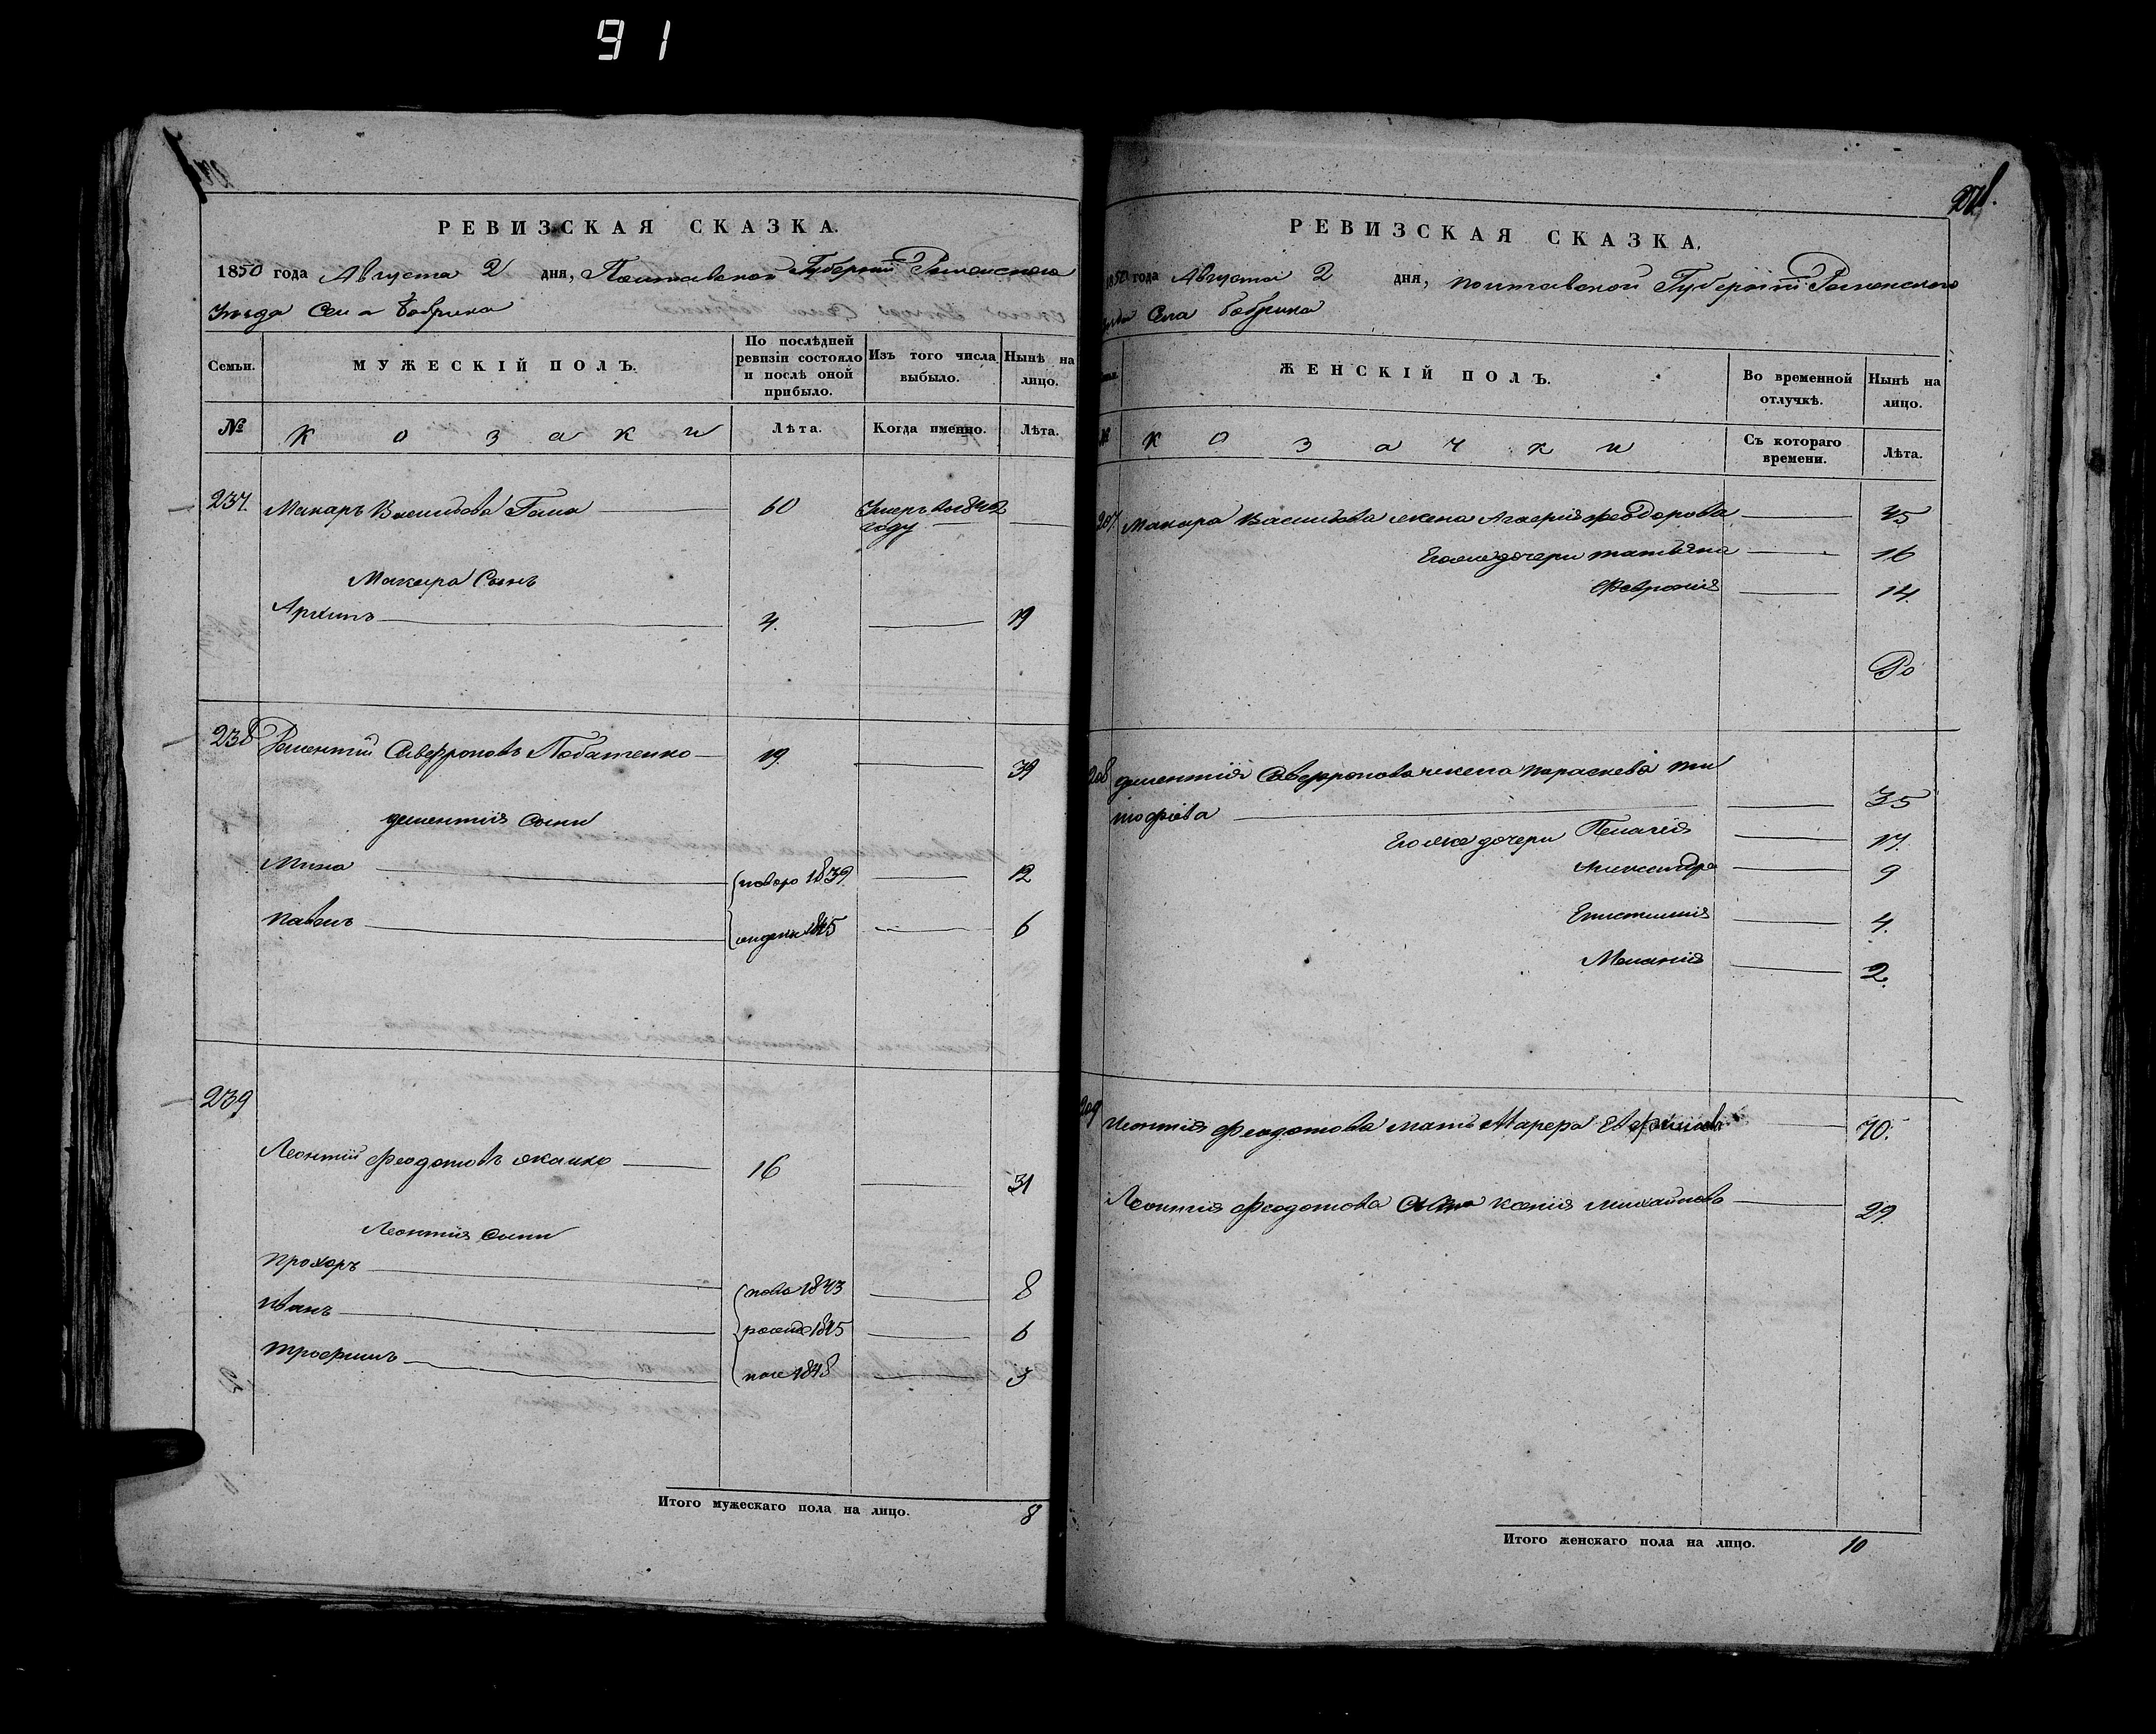 91
РЕВИЗСКАЯ СКАЗКА.
1850 года Августа 2 дня, Полтавской Губерніи Роменского
Уезда Села Бобрика
Семьи. МУЖЕСКІЙ ПОЛЪ. По послѣдней ревизіи состояло и послѣ оной прибыло. Изъ того числа выбыло. Нынѣ на лицо.
№ Козаки Лѣта. Когда именно. Лѣта.
237. Макаръ Васильевъ 60 Умеръ в 1842 году
Макара Сынъ
Архипъ 4. 19
238 Дементій Савфроновъ 19. 39
Дементія Сыни
Мина ново ро 1839 12
Павелъ 1845 6
239
Леонтій Феодотовъ 16 31
Леонтія Сыни
Прохоръ 1843 8
Иванъ 1845 6
Трофимъ после 1848 3
Итого мужескаго пола на лицо. 8
РЕВИЗСКАЯ СКАЗКА.
1850 года Августа 2 дня, Полтавской Губерніи Роменского
Села Бобрика
ЖЕНСКІЙ ПОЛЪ. Во временной отлучкѣ. Нынѣ на лицо.
№ Козачки Съ котораго времени. Лѣта.
237. Макара Васильева жена Феодорова 45
Его же дочери Татьяна 16
Феврония 14.
238 Дементія Савфронова жена Параскева Ти
мофіева 35
Его же дочери Пелагія 17.
Александра 9
Епистимия 4.
Меланія 2.
239 Леонтія Феодотова мать 70.
Леонтія Феодотова жена Ксенія Михайлова 29.
Итого женскаго пола на лицо. 10